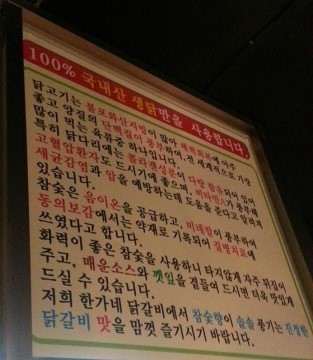 100% 국내산 생닭만을 사용합니다.
닭고기는 불포화산지방이 많아 체력회복에 아주
좋고 양질의 단백질이 풍부하여, 전 세계적으로 가장
많이 먹는 육류중 하나입니다.
특히 닭다리에는 콜라겐성분이 다량 함유되어 있어
고혈압환자도 드시기에 좋으며, 비타민A가 풍부해
세균감염과 암을 예방하는데 도움을 준다고 알려져
있습니다.
참숯은 음이온을 공급하고, 미네랄이 풍부하여
동의보감에서는 약재로 기록되어 질병치료에
쓰였다고 합니다.
화력이 좋은 참숯을 사용하니 타지않게 자주 뒤집어
주고, 매운소스와 깻잎을 곁들여 드시면 더욱 맛있게
드실 수 있습니다.
저희 한가네 닭갈비에서 참숯향이 솔솔 풍기는 진정한
닭갈비 맛을 맘껏 즐기시기 바랍니다.